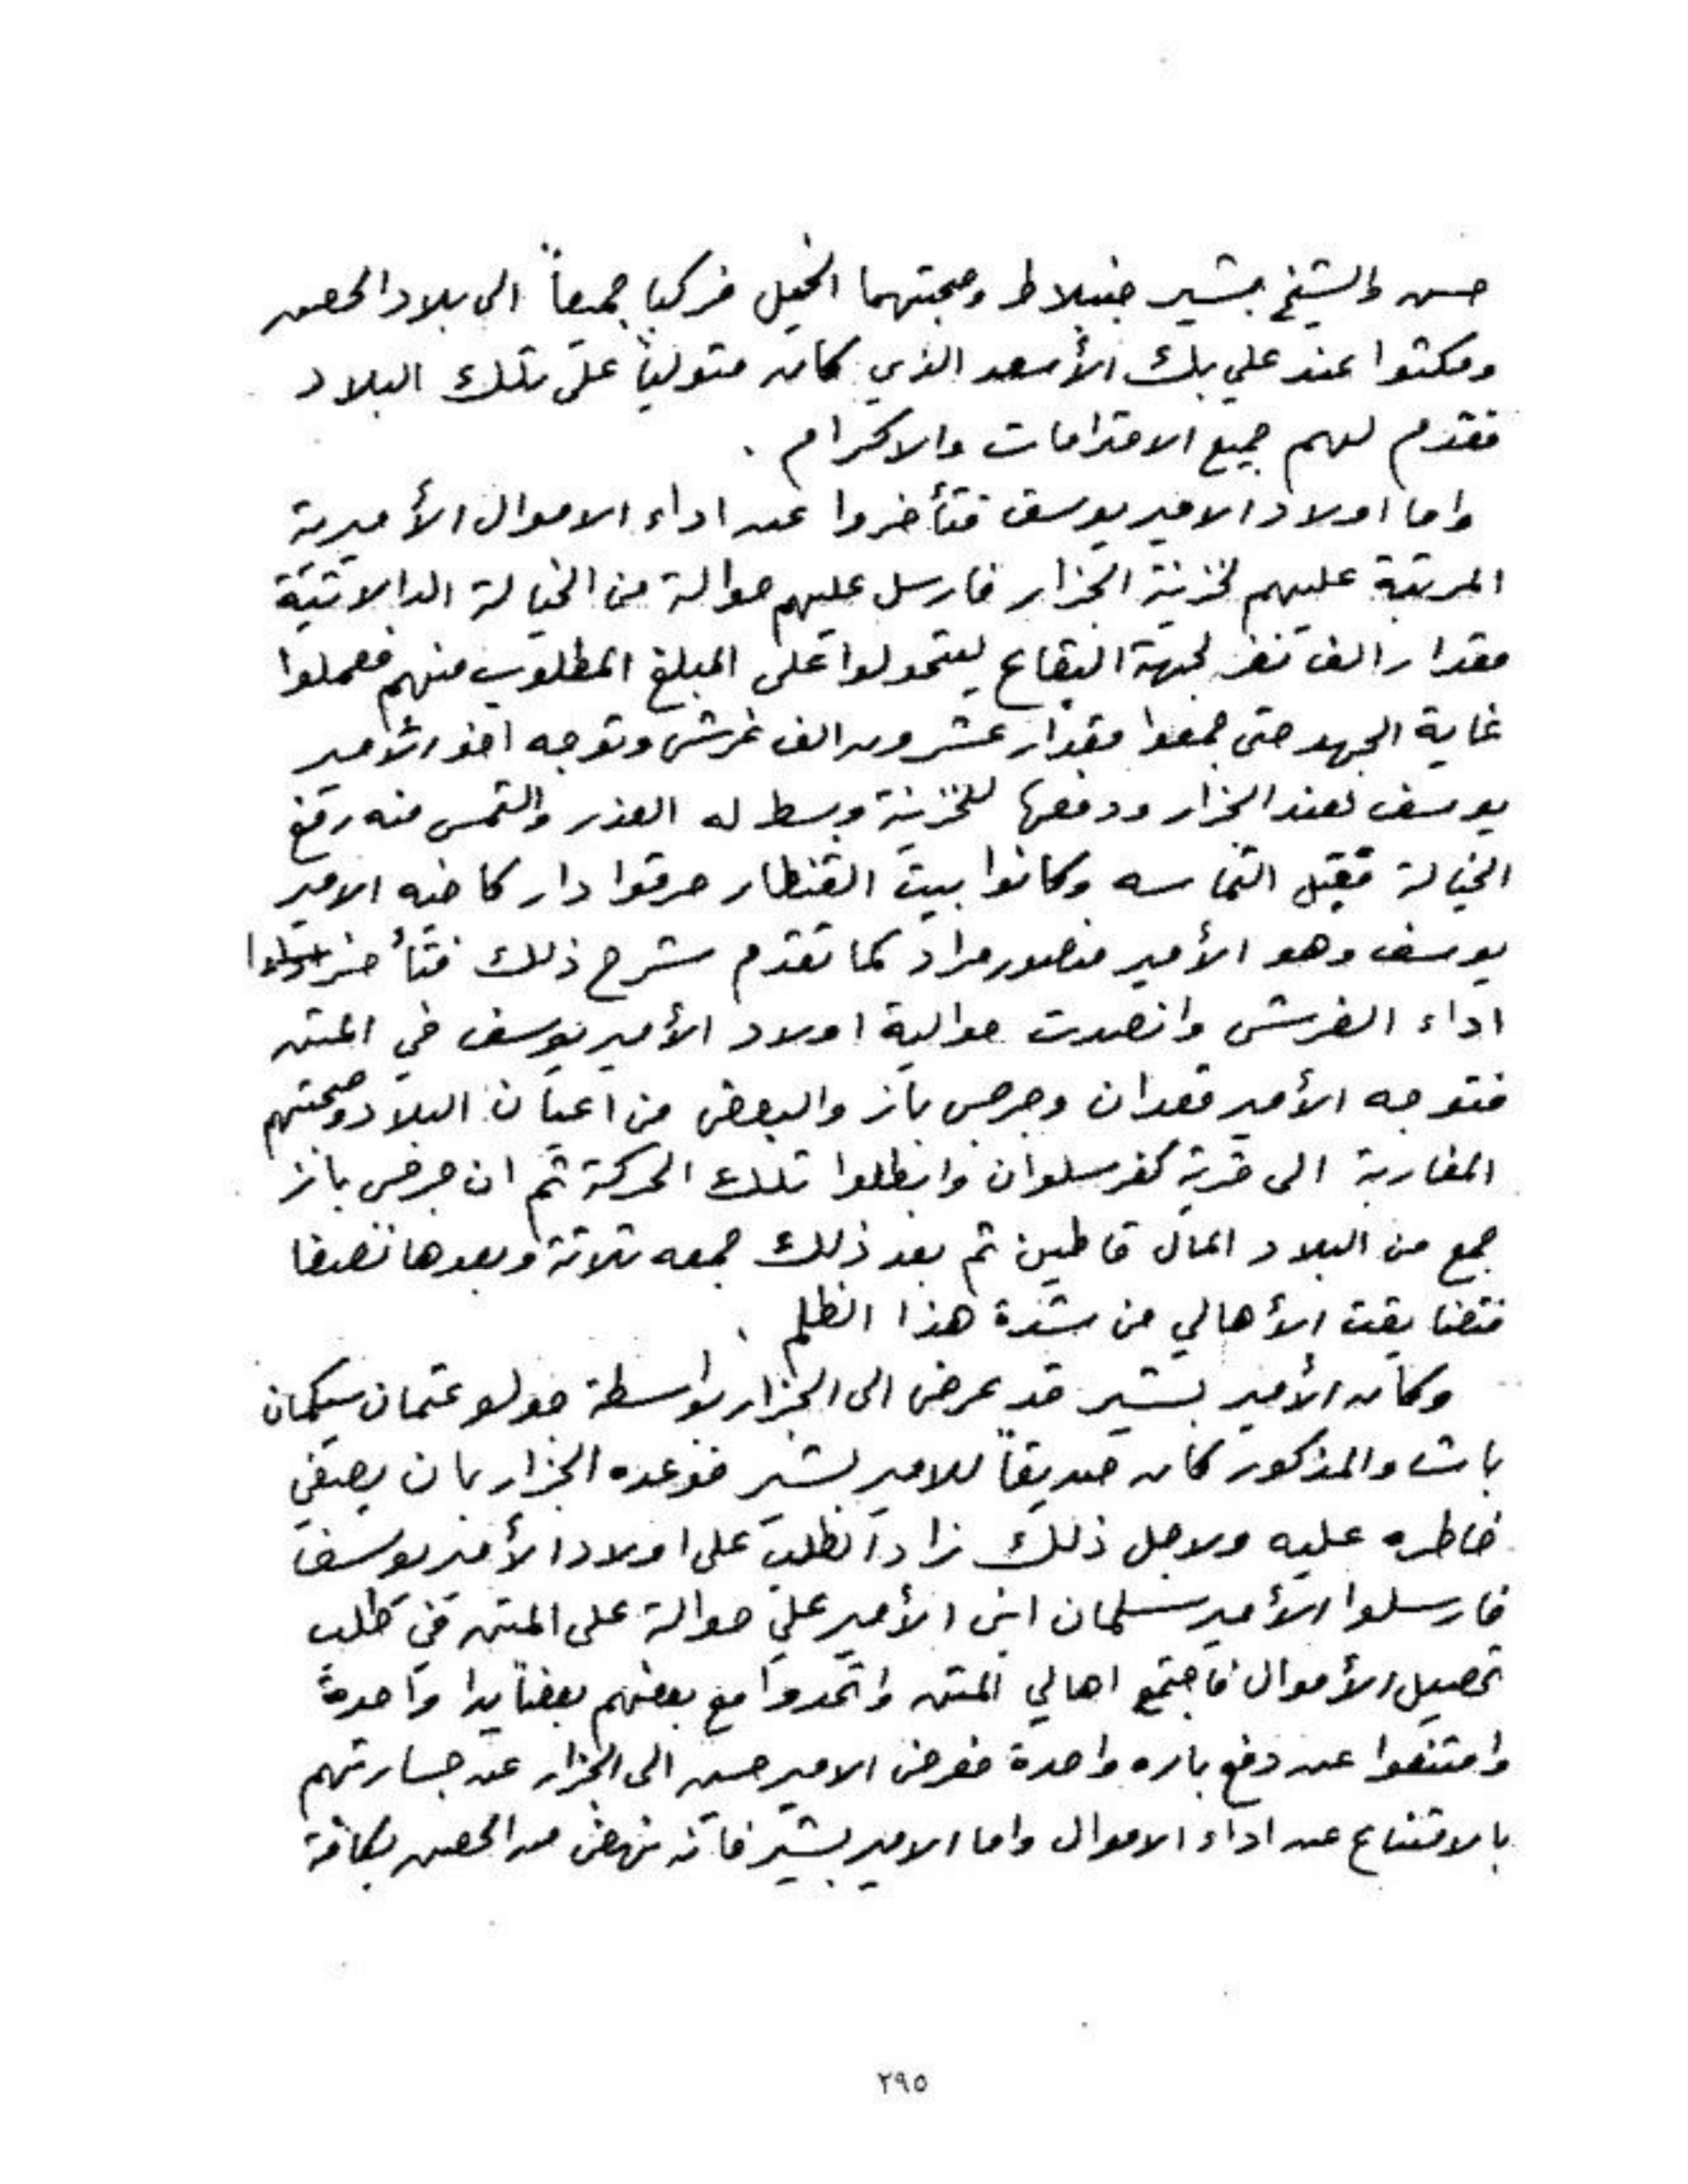 حسن والشيخ بشير جنبلاط وصحبتهما الخيل فركبا جميعاً الى بلاد الحصن
ومكثوا عند علي بك الأسعد الذي كان متولياً على تلك البلاد
فقدم لهم جميع الاحترامات والاكرام .
واما اولاد الامير يوسف فتأخروا عن اداء الاموال الأميرية
المرتبة عليهم لخزينة الجزار فارسل عليهم حوالة من الخيالة الدالاتية
مقدار الف نفر لجهة البقاع ليتحولوا على المبلغ المطلوب منهم فعملوا
غاية الجهد حتى جمعوا مقدار عشرون الف غرش وتوجه اخو الأمير
يوسف لعند الجزار ودفعها للخزينة وبسط له العذر والتمس منه رفع
الخيالة فقبل التماسه وكانوا بيت القنطار حرقوا دار كاخيه الامير
يوسف وهو الأمير منصور مراد كما تقدم شرح ذلك فتأخر
اداء الغرش وانصدت حوالية اولاد الأمير يوسف في المتن
فتوجه الأمير قعدان وجرجس باز والبعض من اعيان البلاد وصحبتهم
المغاربة الى قرية كفرسلوان وابطلوا تلك الحركة ثم ان جرجس باز
جمع من البلاد المال قاطين ثم بعد ذلك جمعه ثلاثة وبعدها نصفا
فتضايقت الأهالي من شدة هذا الظلم .
وكان الأمير بشير قد عرض الى الجزار بواسطة جولو عثمان سيكمان
باشا والمذكور كان صديقاً للامير بشير فوعده الجزار بان يصفي
خاطره عليه ولاجل ذلك زاد الطلب على اولاد الأمير يوسف
فارسلوا الأمير سلمان ابن الأمير علي حوالة على المتن في طلب
تحصيل الأموال فاجتمع اهالي المتن واتحدوا مع بعضهم بعضاً يدا واحدةً
وامتنعوا عن دفع باره واحدة فعرض الامير حسين الى الجزار عن جسارتهم
بالامتناع عن اداء الاموال واما الامير بشير فانه نهض من الحصن بكافة
٢٩٥